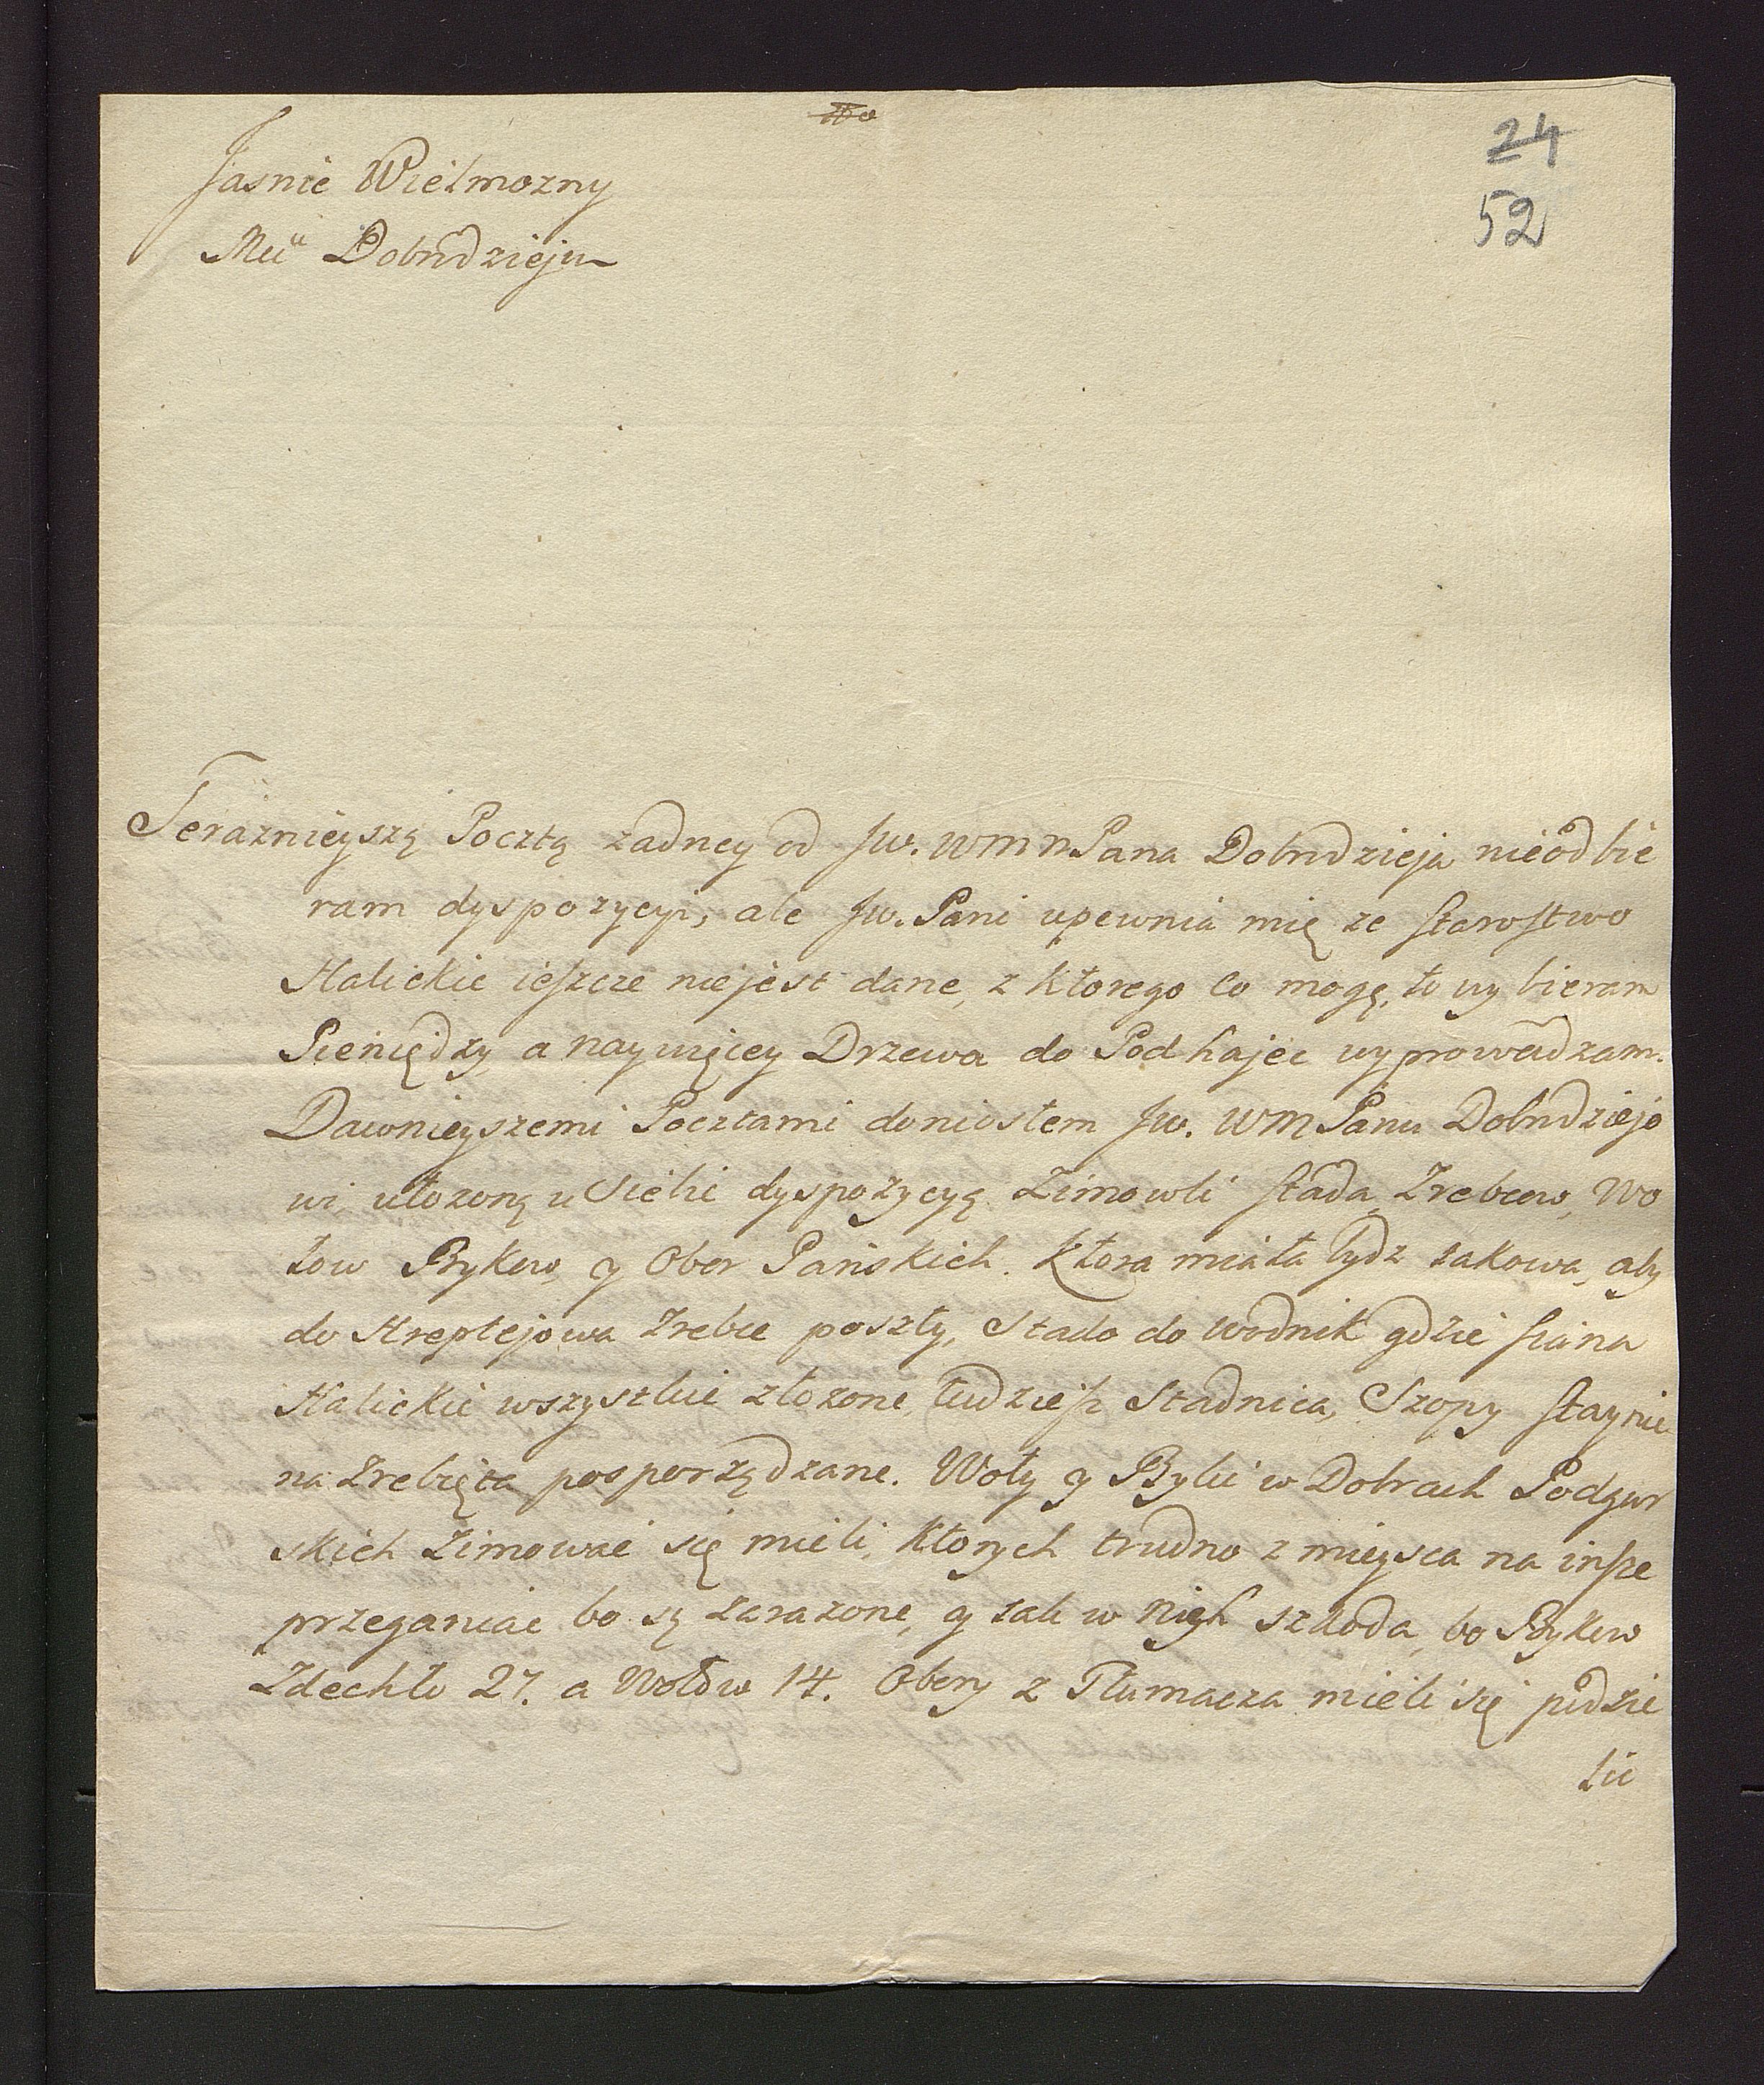 24
52
Jasnie Wielmozny
Mci Dobrodzieju
Teraznieyszą Pocztą zadney od Jw. WMM Pana Dobrodzieja nieodbie
ram dyspozycyi, ale Jw. Pani upewnia mię ze Starostwo
Halickie ieszcze niejest dane, z ktorego co mogę, to wybieram
Pieniędzy a naywięcey Drzewa do Podhajec wyprowadzam.
Dawnieyszemi Pocztami doniosłem Jw. WM Panu Dobrodziejo
wi, ułozoną u Siebie dyspozycyą Zimowli Stada, Zrebcow, Wo
łow Bykow, y Obor Pańskich. Ktora miała bydz takowa, aby
do Hreptejowa Zrebce poszły, Stado do Wodnik gdzie siana
Halickie wszystkie złozone, tudziesz Stadnica, Szopy staynie
na Zrebięta posporządzane. Woły y Byki w Dobrach Podgur
skich Zimowac się mieli, Ktorych trudno z mieysca na insze
przeganiac bo są zarazone, y tak w nich szkoda, bo Bykow
Zdechło 27. a Wołow 14. Obory z Tłumacza mieli się podzie
lic